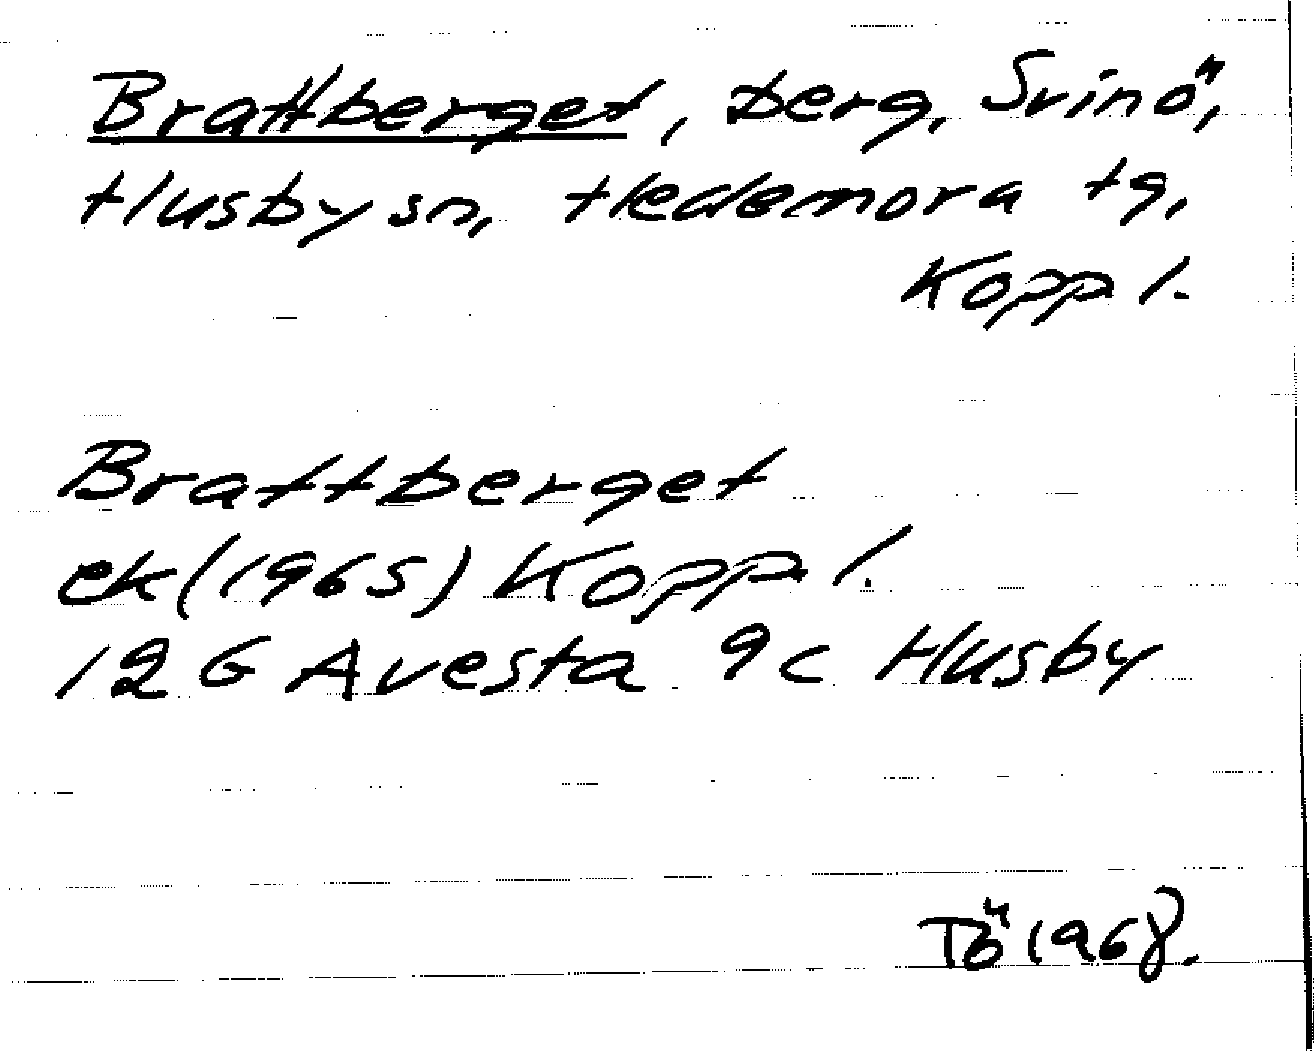 Brattberget, berg, Svinö,
Husby sn, Hedemora tg,
Kopp l.
Brattberget
ek (1965) Kopp l.
12 G Avesta 9c Husby
Tö 1968.